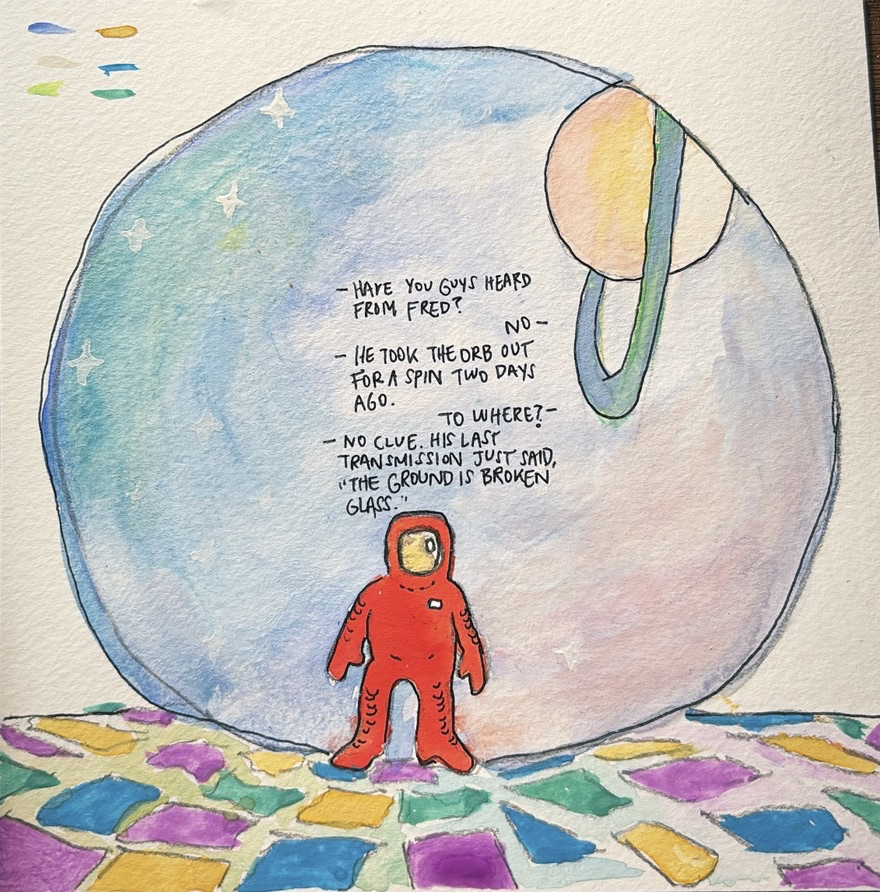 - HAVE YOU GUYS HEARD
FROM FRED?
NO -
- HE TOOK THE ORB OUT
FOR A SPIN TWO DAYS
AGO.
TO WHERE? -
- NO CLUE. HIS LAST
TRANSMISSION JUST SAID,
"THE GROUND IS BROKEN
GLASS."